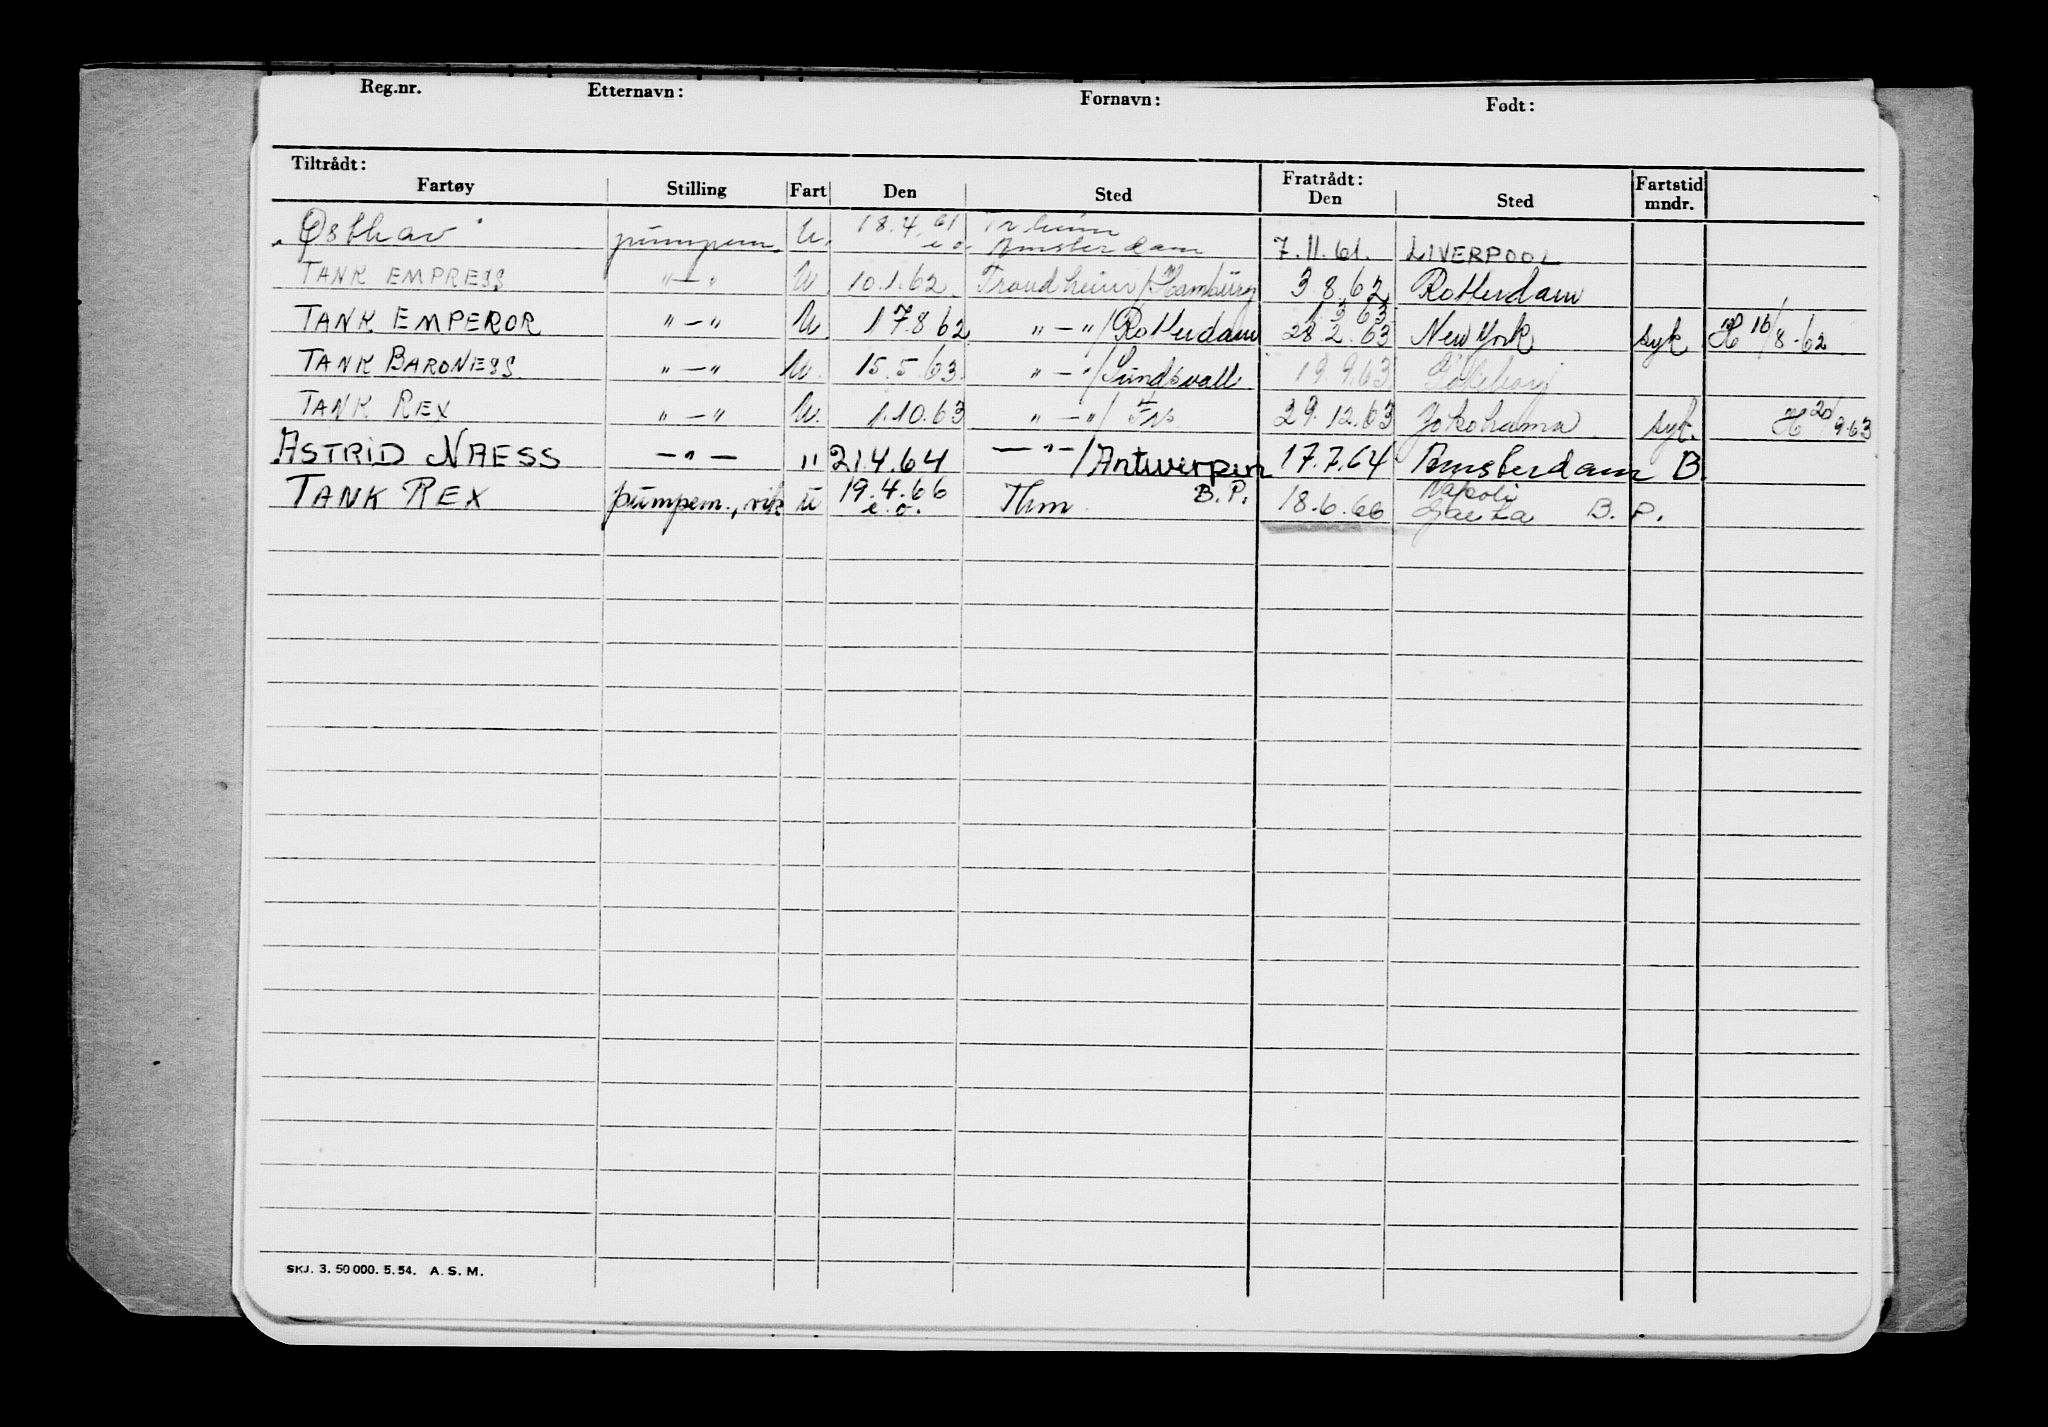 Reg.nr. Etternavn: Fornavn: Født:
Tiltrådt: Fratrådt:
Fartøy Stilling Fart Den Sted Den Sted Fartstid mndr.
Østhav pumpem. U. 18.4.61 e.o. Tr.heim Amsterdam 7.11.61. LIVERPOOL
TANK EMPRESS "—" U. 10.1.62. Trondheim/Hamburg 3.8.62 Rotterdam
TANK EMPEROR "—" U. 17.8.62 "—"/Rotterdam 1.3.63 28.2.63 New York syk H 16/8-62
TANK BARONESS "—" U. 15.5.63. "—"/Sundsvall 19.9.63 Göteborg
TANK REX "—" U. 1.10.63 "—"/ 29.12.63 Yokohama syk. H 20/9-63
ASTRID NAESS —"— " 21.4.64 —"—/Antwerpen 17.7.64 Amsterdam B.
TANK REX pumpem., vik u 19.4.66 e.o. Thm B.P. 18.6.66 Napoli Gaeta B.P.
SKJ. 3. 50 000. 5. 54. A. S. M.